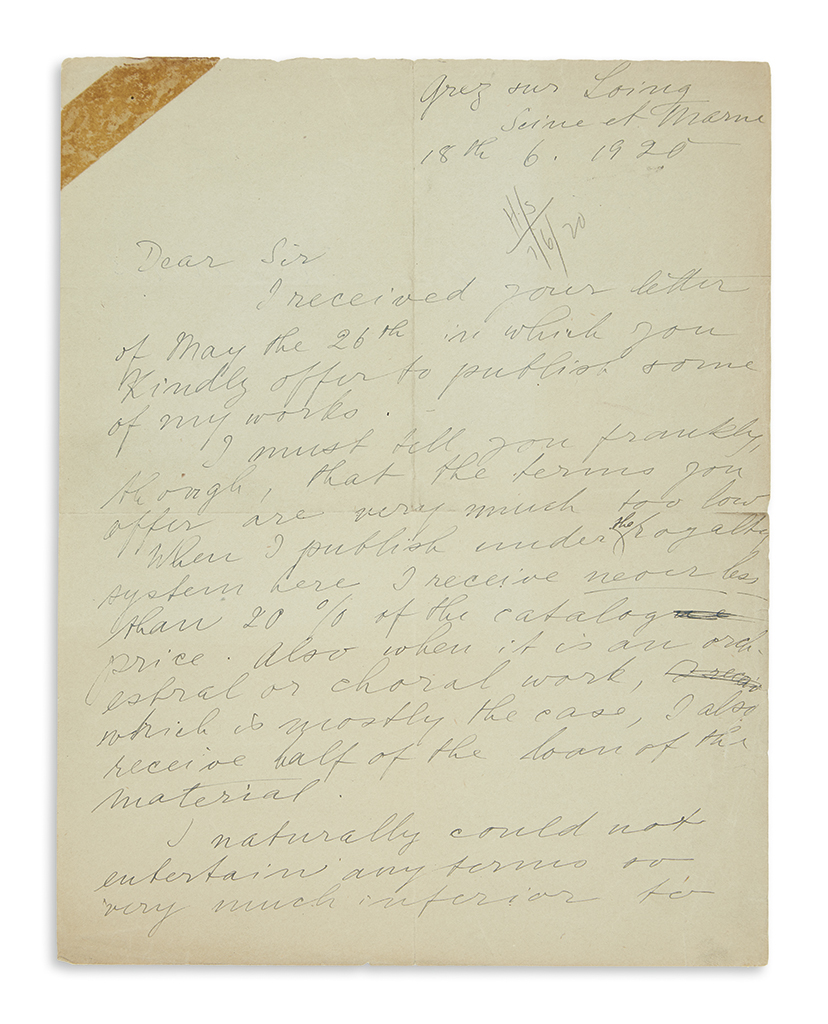 Grez sur Loing
Seine et Marne
18th 6. 1920
H/S
7/6/20
Dear Sir
I received your letter
of May the 26th in which you
Kindly offer to publish some
of my works.
I must tell you frankly,
though, that the terms you
offer are very much too low
When I publish under the royalty
system here I receive never less
than 20 % of the catalogue
price. Also when it is an orch-
estral or choral work,
which is mostly the case, I also
receive half of the loan of the
material.
I naturally could not
entertain any terms so
very much inferior to